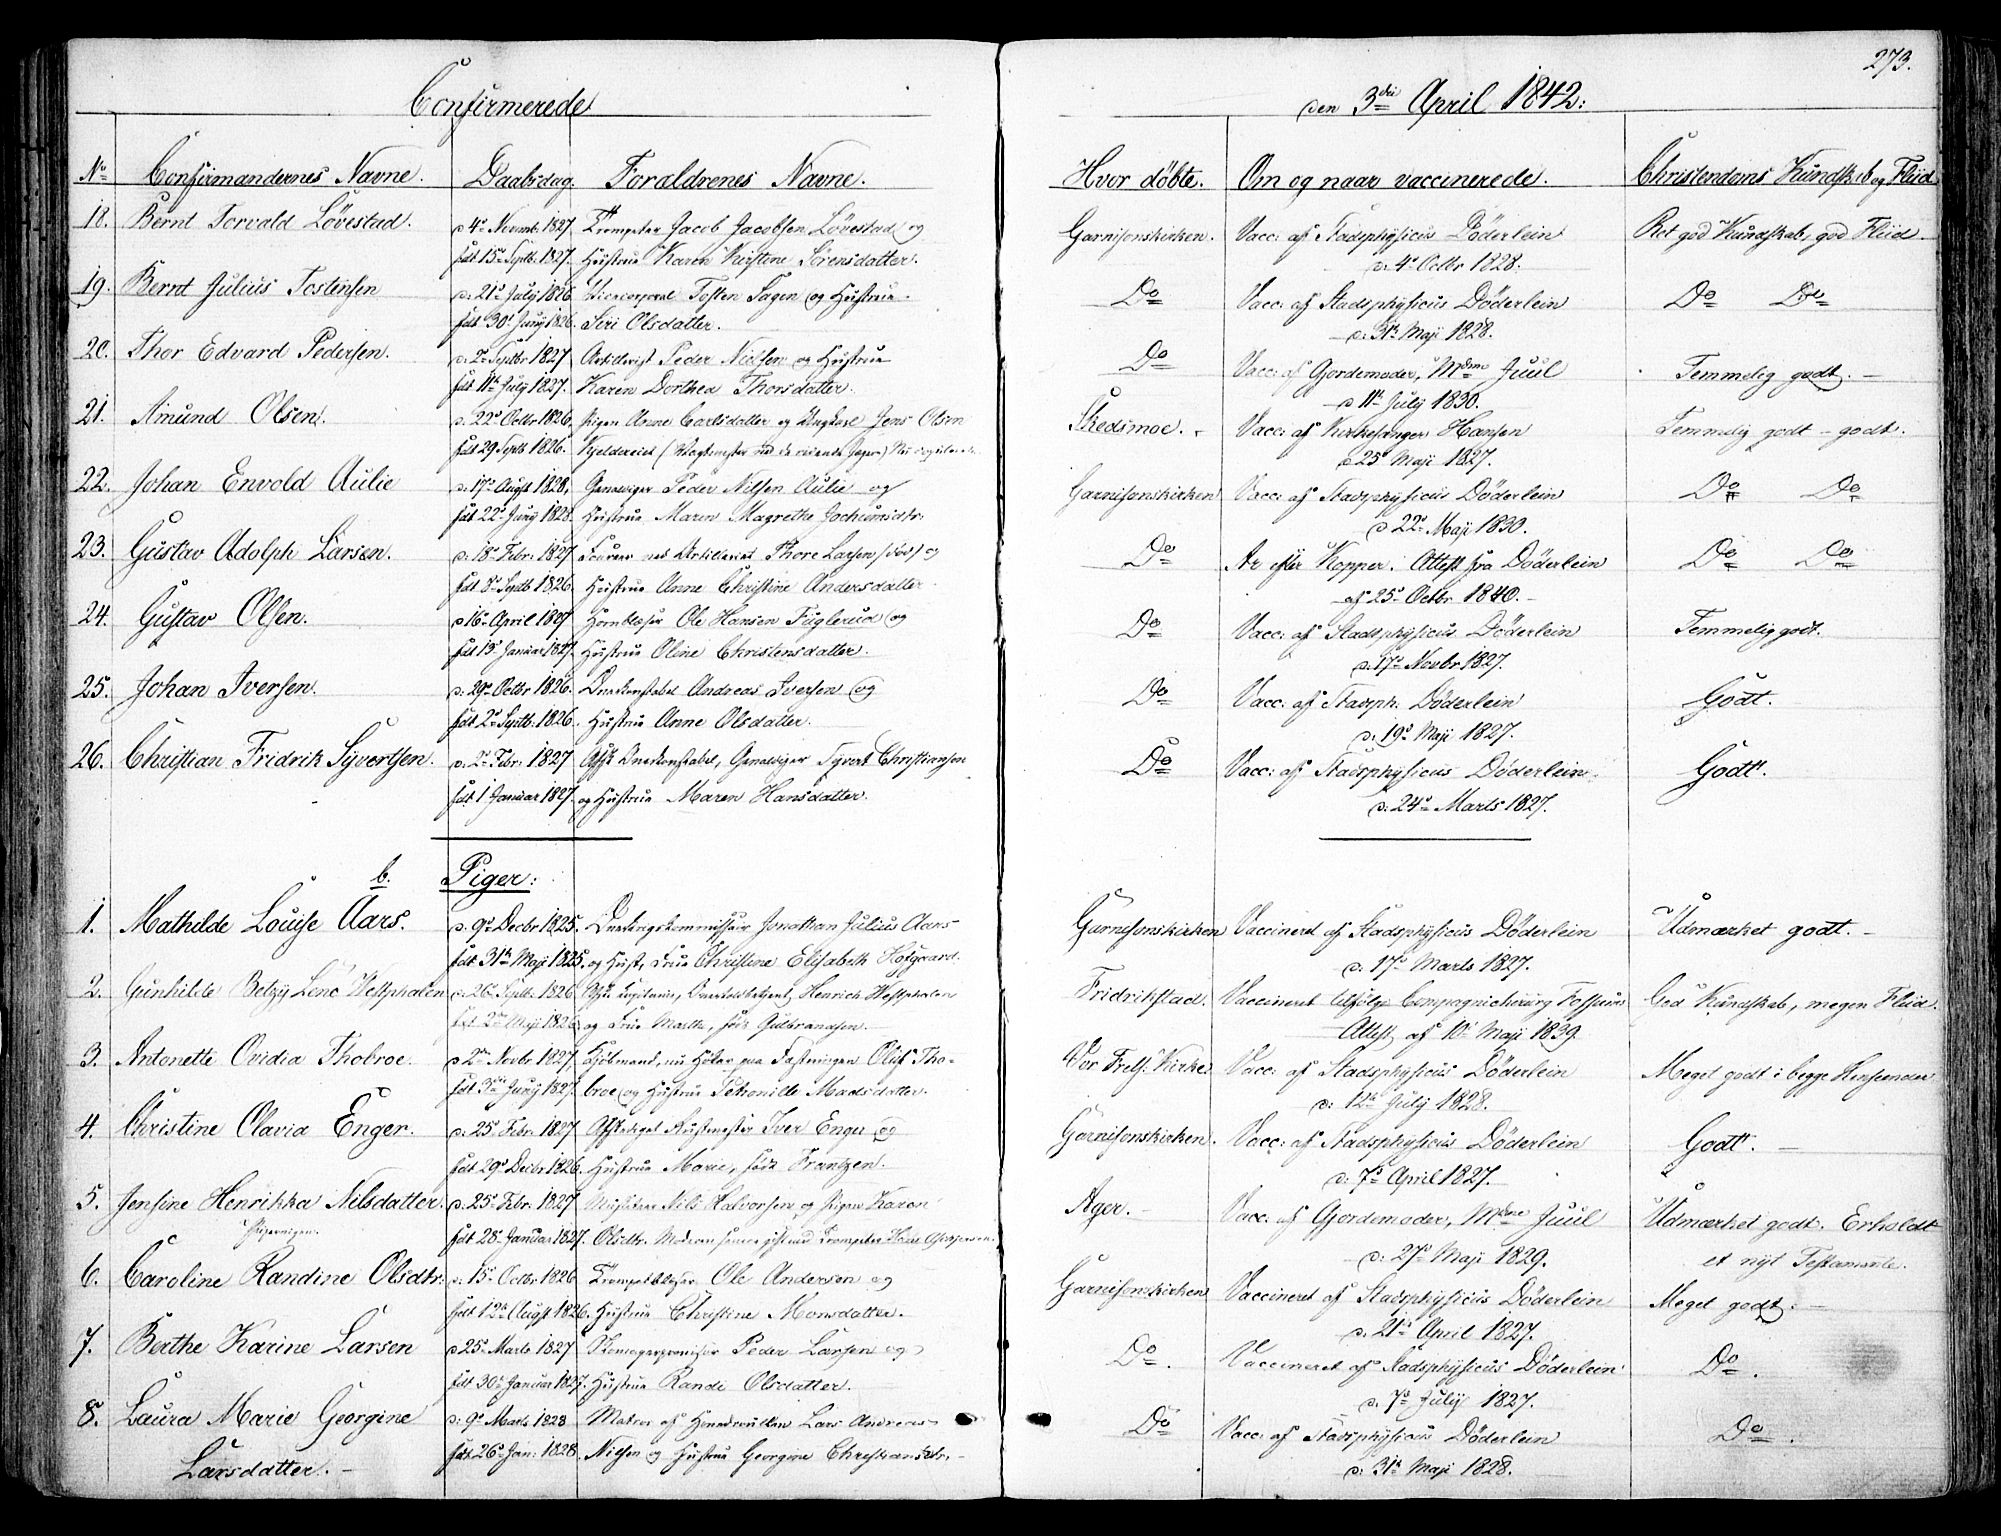 273.
Confirmerede
den 3die April 1842:
No Confirmandernes Navne. Daabsdag. Forældrenes Navne. Hvor døbte. Om og naar vaccinerede. Christendoms Kundskab og Fliid
18. Bernt Torvald Løvestad. d 4de Novemb. 1827. Trompeter Jacob Jacobsen Løvestad og Garnisonskirken. Vacc: af Stadsphysicus Døderlein Ret god Kundskab, god Fliid.
født 15de Septb: 1827. Hustrue Karen Kirstine Sørensdatter. d. 4de Octbr 1828.
19. Bernt Julius Tostensen d: 21de July 1826. Vicecorporal Tosten Sagen og Hustrue Do Vacc: af Stadsphysicus Døderlein Do Do
født 30te Juny 1826. Siri Olsdatter. d: 31te Maji 1828.
20. Thor Edvard Pedersen. d: 2den Septbr 1827 Artillerist Peder Nielsen og Hustrue Do Vacc: af Gjordemoder, Mdme Juul Temmelig godt.
født 11te July 1827. Karen Dorthea Thorsdatter. d 11te July 1830.
21. Amund Olsen. d: 22de Octbr 1826. Pigen Anne Carlsdatter og Ungkarl Jens Olsen Skedsmoe. Vacc: af Kirkesanger Hansen Temmelig godt - godt.
født 29 Septb 1826. Kjeldereiet (Vagtmester ved de ridende Jægere) d 25de Maji 1827.
22. Johan Envold Aulie d: 17de Augst 1828, Gevaldiger Peder Nilsen Aulie og Garnisonskirken Vacc: af Stadsphysicus Døderlein Do Do
født 22de Juny 1828 Hustrue Maren Magrethe Jochumsdtr: d 22de Maji 1830.
23. Gustav Adolph Larsen. d: 18de Febr: 1827 Fourer ved Artilleriet Thore Larsen /død/ og Do Ar efter Kopper. Attest fra Døderlein Do Do
født 8de Septb 1826. Hustrue Anne Christine Andersdatter af 25de Octbr 1840.
24. Gustav Olsen. d 16de April 1827 Hornblæser Ole Hansen Fuglerud og Do Vacc: af Stadsphysicus Døderlein Temmelig godt.
født 13de Januar 1827. Hustrue Oline Christensdatter. d: 17de Novbr 1827.
25. Johan Iversen. d: 29de Octbr 1826. Underkonstabel Andreas Iversen og Do Vacc: af Stadsph. Døderlein Godt.
født 2den Septb: 1826. Hustrue Anne Olsdatter. d: 19de Maji 1827.
26. Christian Fridrik Syvertsen. d: 2den Febr: 1827 Afsk Underkonstabel, Gevaldiger Syvert Christiansen Do Vacc: af Stadsphysicus Døderlein. Godt.
født 1 Januar 1827. og Hustrue Maren Hansdatter. d: 24de Marts 1827.
b. Piger:
1. Mathilde Louise Aars. d. 9de Decbr 1825. Underkrigskommissair Jonathan Julius Aars Garnisonskirken Vaccineret af Stadsphysicus Døderlein Udmærket godt.
født 31te Maji 1825. og Hust, Frue Christine Elisabeth Hofgaard. d: 17de Marts 1827.
2. Gunhilde Betzy Lene Westphalen d: 26de Septb: 1826 Afsk. Henrich Westphalen Fridrikstad. Vaccineret ifølge Compagniechirurg Fossums God Kundskab, megen Fliid.
født 2den Maji 1826 og Frue Marthe, født Gulbrandsen. Attest af 10de Maji 1839.
3. Antonette Ovidia Thobroe. d 2den Novbr 1827, Kjøbmand, nu Høker paa Fæstningen Oluf Tho- Vor Frels: Kirke Vacc: af Stadsphysicus Døderlein Meget godt i begge Henseender
født 3die Juny 1827. broe og Hustrue Petronille Madsdatter. d: 12te July 1828.
4. Christine Olavia Enger. d: 25de Febr: 1827 Afskediget Rustmester Iver Enger og Garnisonskirken. Vacc: af Stadsphysicus Døderlein Godt.
født 29de Decbr 1826. Hustrue Marie, født Frantzen. d: 7de April 1827.
5. Jensine Henrikka Nilsdatter. d: 25de Febr: 1827 Musketeer Nils Halvorsen og Pigen Karen Ager. Vacc: af Gjordemoder, Mdme Juul Udmærket godt. Erholdt
født 28de Januar 1827. Olsdtr. Moderen senere gift med Trompeter d: 27de Maji 1829. et nyt Testamente.
6. Caroline Randine Olsdtr: d: 15de Octbr 1826 Trompetblæser Ole Andersen og Garnisonskirken Vaccineret af Stadsphysicus Døderlein Meget godt.
født 12te Augst 1826. Hustrue Christine Monsdatter. d: 21de April 1827.
7. Berthe Karine Larsen d 25de Marts 1827 Skomagerprovisor Peder Larsen og Do. Vaccineret af Stadsphysicus Døderlein Do.
født 30te Januar 1827. Hustrue Randi Olsdatter. d. 7de July 1827.
8. Laura Marie Georgine d: 9de Marts 1828 Matros af Lars Andreas Do Vacc: af Stadsphysicus Døderlein Do.
Larsdatter. født 26de Jan: 1828. Nielsen og Hustrue Georgine Christiansdtr. d: 31te Maji 1828.